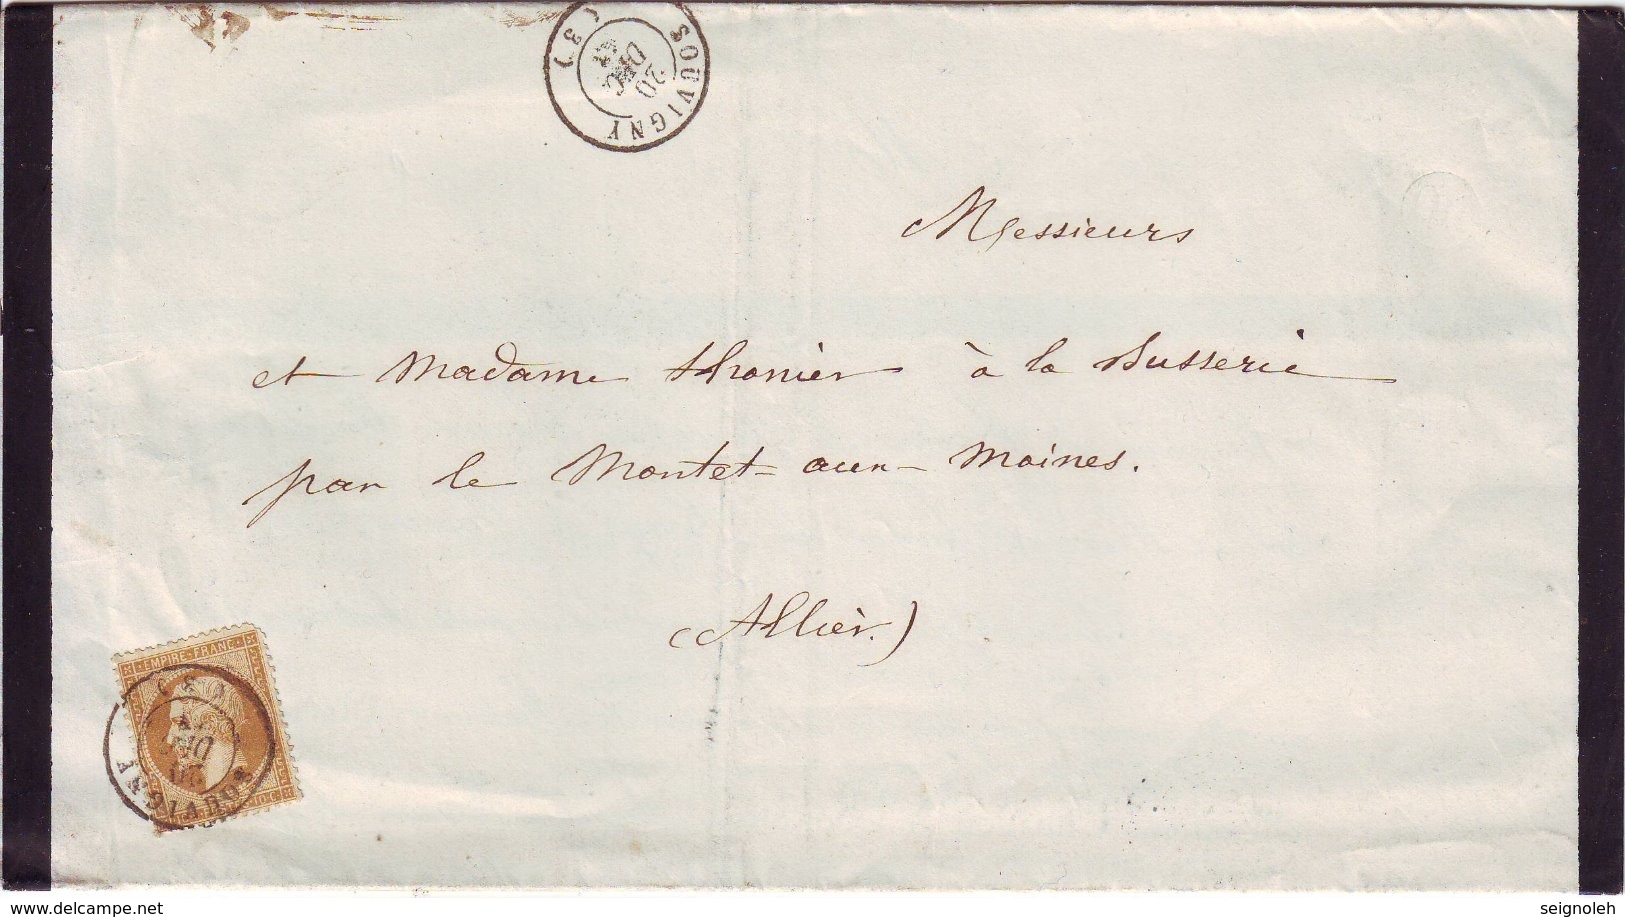 SOUVIGNY
(3)
20
DEC
Messieurs
et Madame Thonier à la Busserie
par le Montet-aux-Moines.
(Allier.)
EMPIRE-FRANC
SOUVIGNY
www.delcampe.net
seignoleh